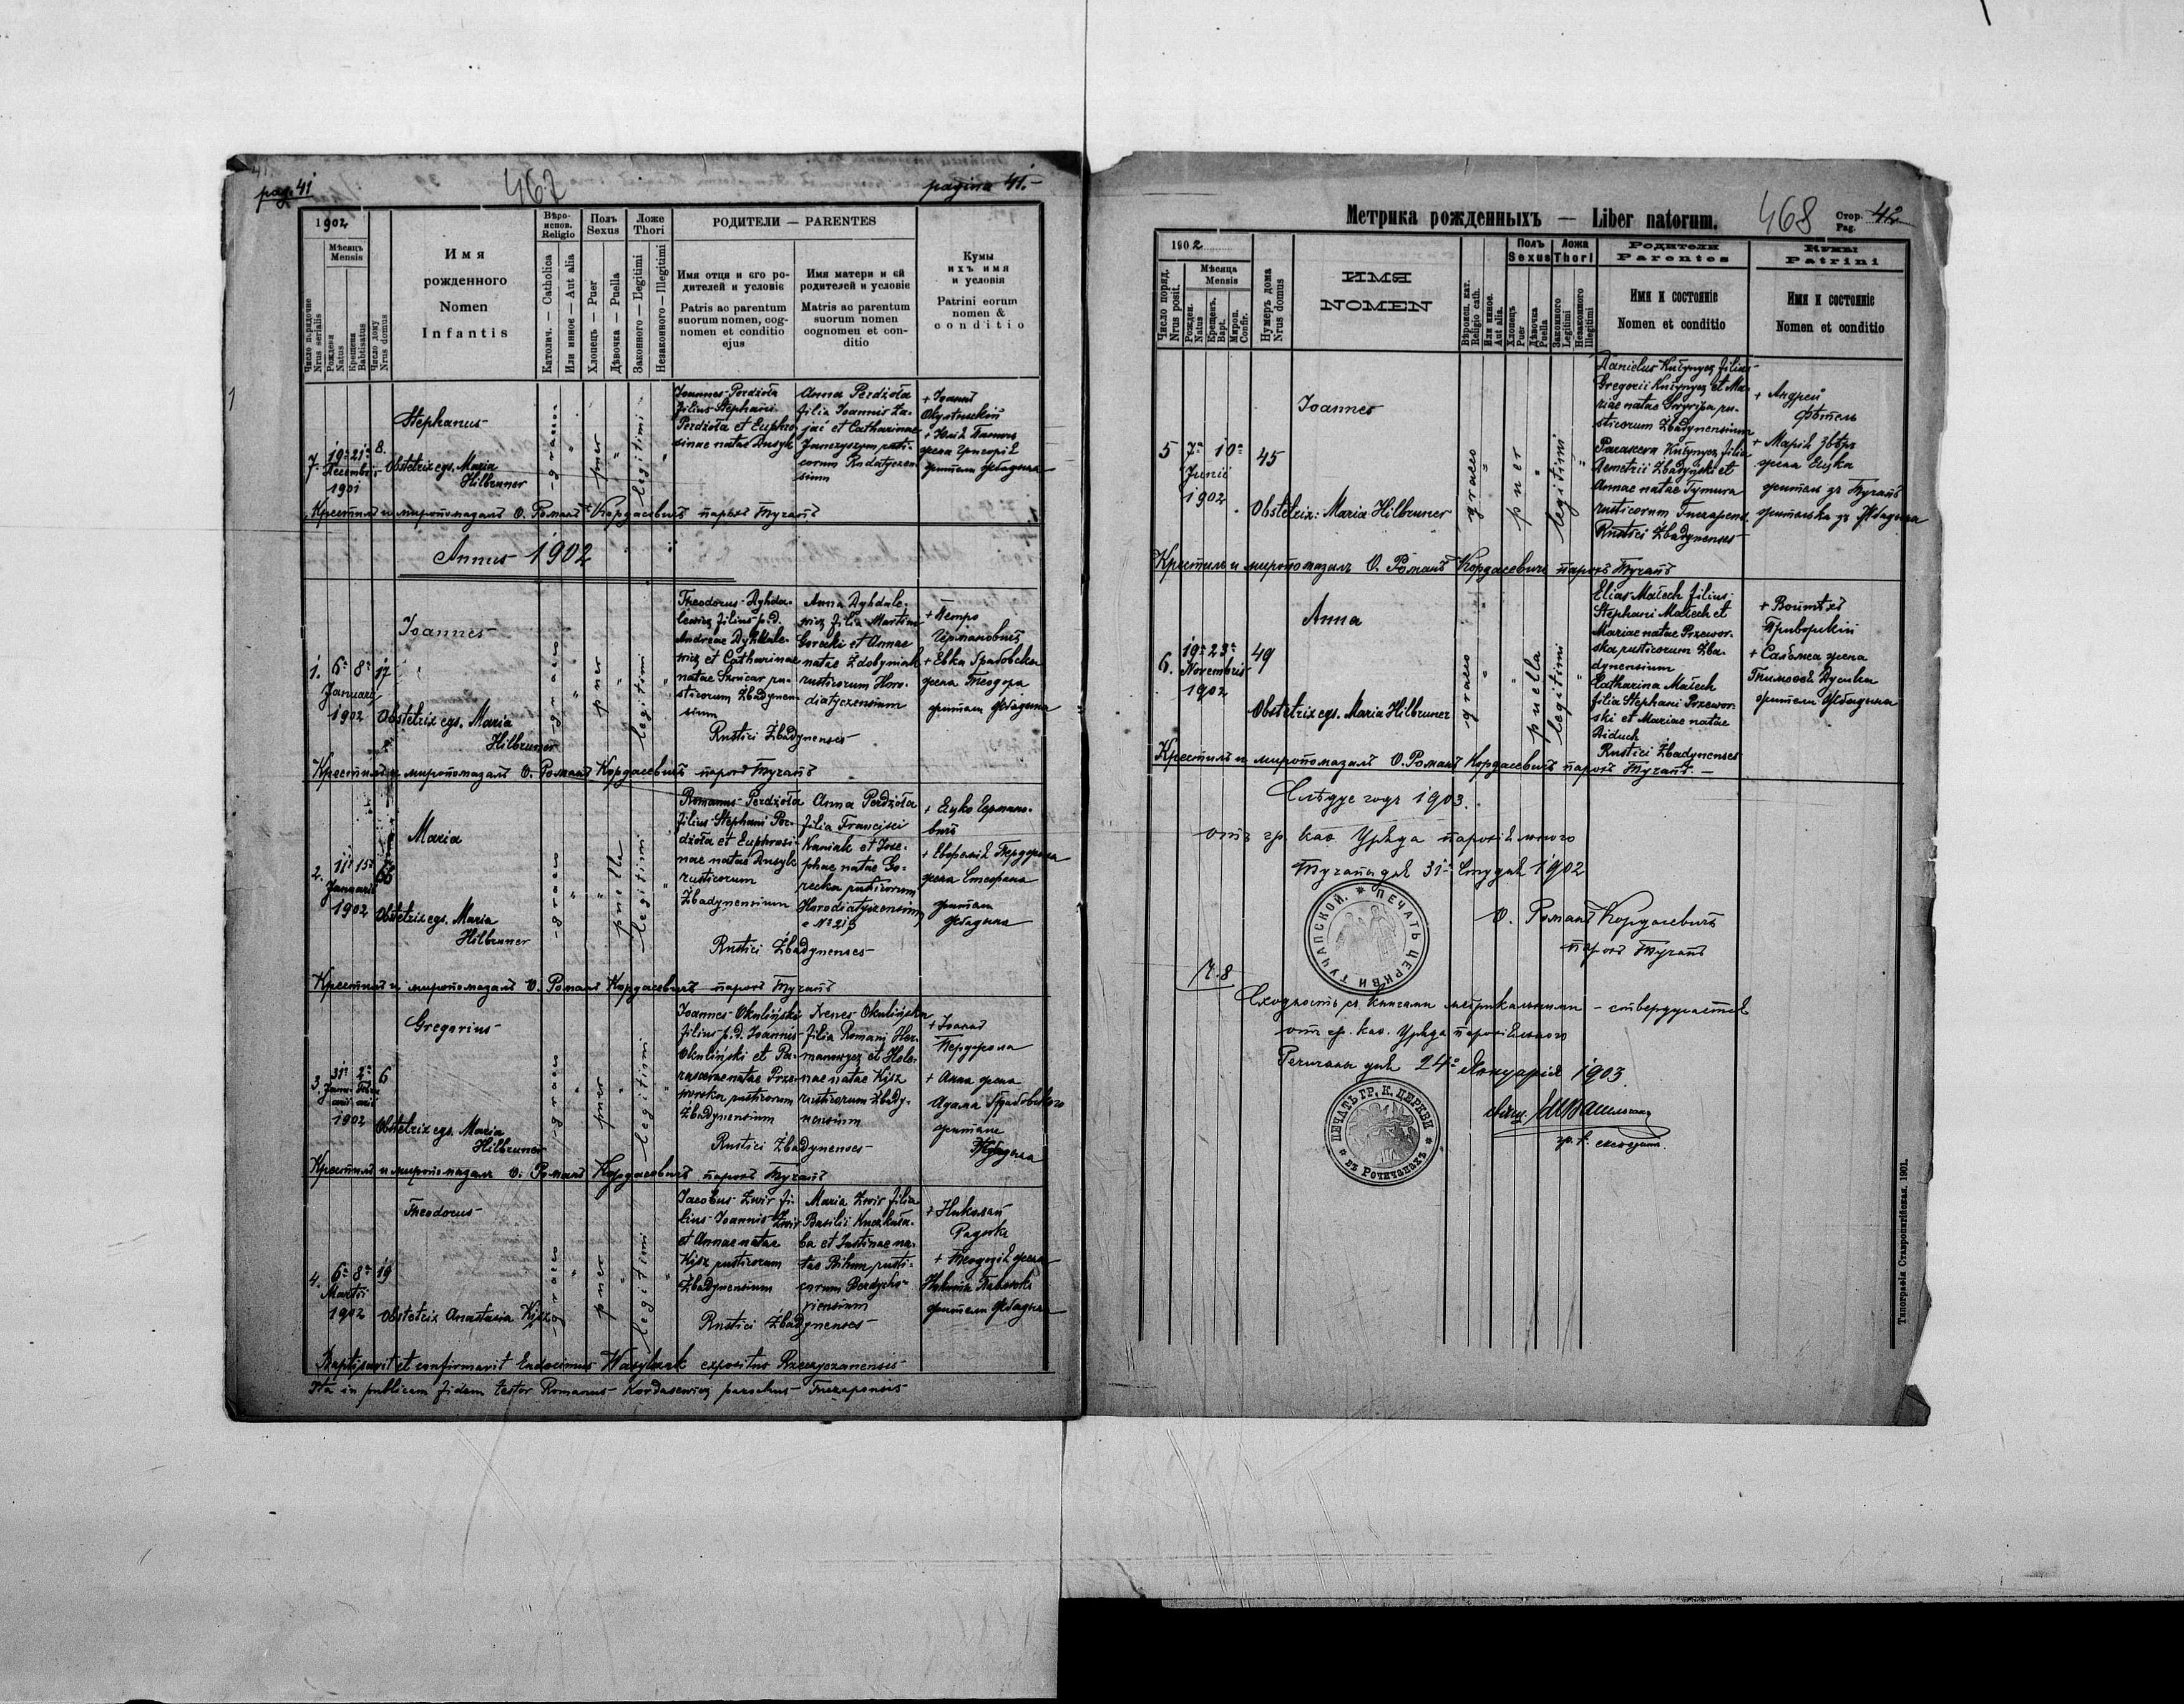 pag. 41
467
pagina 41.
1902
Мѣсяць
Mensis
Число порядочне
Nrus serialis
Рожденя
Natus
Крещеня
Babtisatus
Число дому
Nrus domus
Имя
рожденного
Nomen
Infantis
Вѣро-
испов.
Religio
Католич. — Catholica
Или инное — Aut alia
Полъ
Sexus
Хлопецъ — Puer
Дѣвочка — Puella
Ложе
Thori
Законного — Legitimi
Незаконного — Illegitimi
РОДИТЕЛИ — PARENTES
Имя отця и єго ро-
дителей и условіє
Patris ac parentum
suorum nomen, cog-
nomen et conditio
ejus
Имя матери и єй
родителей и условіє
Matris ac parentum
suorum nomen
cognomen et con-
ditio
Кумы
ихъ имя
и условія
Patrini eorum
nomen &
conditio
7. 19. 21. 8.
Decembris
1901
Stephanus
Obstetrix egs. Maria
Hilbruner
graeco
puer
legitimi
Joannes Perdzioła
filius Stephani
Perdzioła et Euphro-
sinae natae Dusyk
Anna Perdzioła
filia Joannis Za-
jać et Catharinae
rusti-
corum Rudatyczen-
sium
+ Іоаннъ
жена Григорія
жители Жбадыня
Крестилъ и миропомазалъ О. Романъ Кордасевичъ парохъ Тучапъ
Annus 1902
1. 6. 8. 17
Januarij
1902
Joannes
Obstetrix egs. Maria
Hilbruner
graeco
puer
legitimi
Theodorus Dyhda-
lewicz filius p.d.
Andreae Dyhdale-
wicz et Catharinae
natae ru-
sticorum Żbadynen-
sium
Anna Dyhdale-
wicz filia Martini
Gorecki et Annae
natae Zdobyniak
rusticorum Horo-
diatyczensium
Rustici Żbadynenses
+ Петро
Цірмановичъ
+ Евка Грабовска
жена Теодора
жители Жбадыня
Крестилъ и миропомазалъ О. Романъ Кордасевичъ парохъ Тучапъ
2. 11. 15. 66
Januarii
1902
Maria
Obstetrix egs. Maria
Hilbruner
graeco
puella
legitimi
Romanus Perdzioła
filius Stephani Per-
dzioła et Euphrosi-
nae natae Dusyk
rusticorum
Żbadynensium
Anna Perdzioła
filia Francisci
Kaniak et Jose-
phae natae Go-
recka rusticorum
Horodiatyczensium
Rustici Żbadynenses
+ Ецко Германо-
вичъ
+ Евфемія Пердзіола
жена Стефана
жители
Жбадыня
Крестилъ и миропомазалъ О. Романъ Кордасевичъ парохъ Тучапъ
3. 31. 2. 6
Janu- Febru-
arii arii
1902
Gregorius
Obstetrix egs. Maria
Hilbruner
graeco
puer
legitimi
Joannes Okuliński
filius p.d. Joannis
Okuliński et Pa-
rascevae natae Prze-
worska rusticorum
Żbadynensium
Irenes Okulińska
filia Romani Her-
manowycz et Hele-
nae natae Kisz
rusticorum Żbady-
nensium
Rustici Żbadynenses
+ Іоаннъ
Пердзіола
+ Анна жена
Адама Грабовского
жители
Жбадыня
Крестилъ и миропомазалъ О. Романъ Кордасевичъ парохъ Тучапъ
4. 6. 8. 19
Martii
1902
Theodorus
Obstetrix Anastasia Kisz
graeco
puer
legitimi
Jacobus Zwir fi-
lius Joannis Zwir
et Annae natae
Kisz rusticorum
Żbadynensium
Maria Zwir filia
Basilii
et Justinae na-
tae Bihun rusti-
corum Berdycho-
wiensium
Rustici Żbadynenses
+ Николай
+ Теодозія жена
жители Жбадыня
Baptisavit et confirmavit Eudocimus Wasylczak expositus Rzeczyczanensis
Ita in publicam fidem testor Romanus Kordasewicz parochus Tuczapensis
Метрика рожденныхъ — Liber natorum.
468
Стор. 42
Pag.
1902
Число поряд.
Nrus posit.
Мѣсяца
Mensis
Рожден.
Natus
Крещенъ.
Bapt.
Мироп.
Confir.
Нумеръ дома
Nrus domus
ИМЯ
NOMEN
Вѣроисп. кат.
Religio cath.
Или инное.
Aut alia.
Полъ
Sexus
Хлопецъ
Puer
Дѣвочка
Puella
Ложа
Thori
Законного
Legitimi
Незаконного
Illegitimi
Родители
Parentes
Имя и состояніе
Nomen et conditio
Кумы
Patrini
Имя и состояніе
Nomen et conditio
5 7. 10. 45
Junii
1902
Joannes
Obstetrix: Maria Hilbruner
graeco
puer
legitimi
Danielus Kułynycz filius
Gregorii Kułynycz et Ma-
riae natae ru-
sticorum Żbadynensium
Parascera Kułynycz filia
Demetrii Żbadyński et
Annae natae Tymura
rusticorum Tuczapens.
Rustici Żbadynenses
+ Андрей
+ Марія Звѣръ
жена Ецка
житель зъ Тучапъ
жителька зъ Жбадыня
Крестилъ и миропомазалъ О. Романъ Кордасевичъ парохъ Тучапъ
6. 19. 23. 49
Novembris
1902
Anna
Obstetrix egs. Maria Hilbruner
graeco
puella
legitimi
Elias Małech filius
Stephani Małech et
Mariae natae Przewor-
ska rusticorum Żba-
dynensium
Catharina Małech
filia Stephani Przewor-
ski et Mariae natae
Diduch
Rustici Żbadynenses
+ Войтѣхъ
Приворскій
+ жена
Тимофея
жители Жбадыня
Крестилъ и миропомазалъ О. Романъ Кордасевичъ парохъ Тучапъ
Слѣдує годъ 1903.
отъ гр. кат. Уряда парохіяльного
Тучапы дня 31 Студня 1902
О. Романъ Кордасевичъ
парохъ Тучапъ
ПЕЧАТЬ ЦЕРКВИ ТУЧАПСКОЙ.
Ч. 8
Сходность съ книгами метрикальными стверджается
отъ гр. кат. Уряда парохіяльного
Речичаны дня 24 Януарія 1903
ПЕЧАТЬ ГР. К. ЦЕРКВИ въ Речичанахъ
Типографія Ставропигійская. 1901.